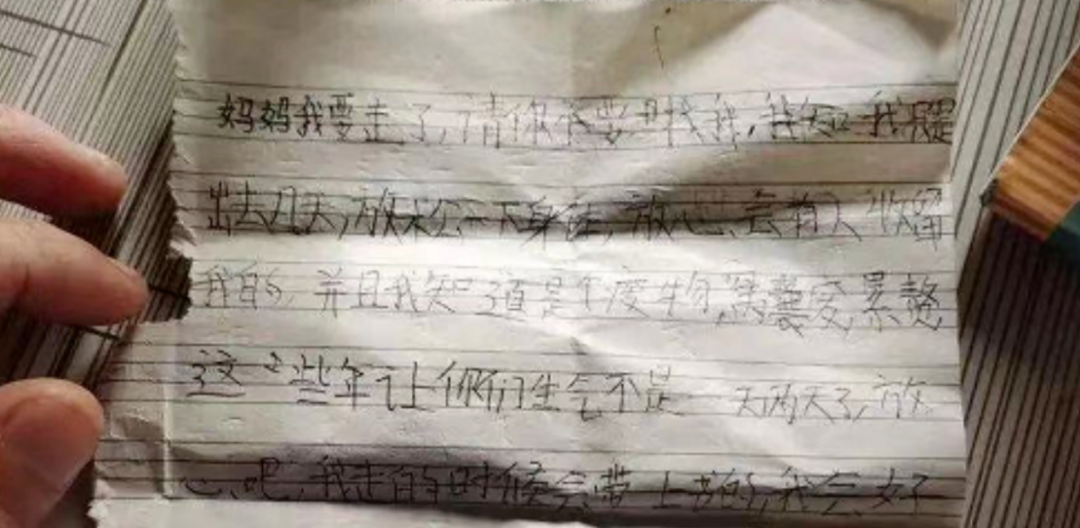 妈妈我要走了,请你不要寻找我,我知 我只是
出去几天,放松一下身在,放心、会有人收留
我的,并且我知道是个废物,窝囊受累赘
这些年让你们生气不是一天两天了,放
心吧,我走的时候会带上书的,我会好